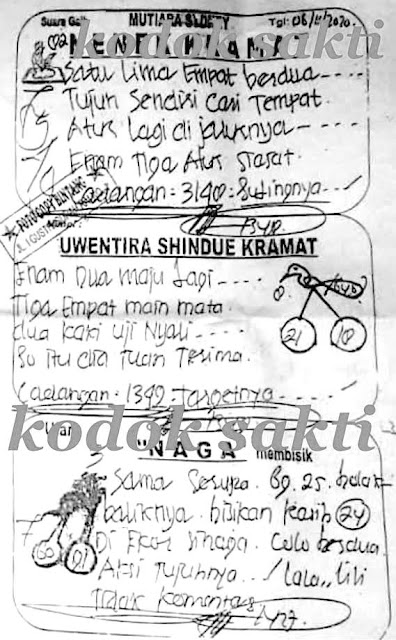 Suara Ga
MUTIARA SYDNEY
Tgl: 06/11/2020.
kodok sakti
Satu Lima Empat berdua
Tujuh Sendiri Cari Tempat.
Atur Lagi di jalurnya
Enam Tiga Atur Siasat.
Cadangan = 3140 =
UWENTIRA SHINDUE KRAMAT
Enam Dua maju Lagi
Tiga Empat main mata
dua kaki uji Nyali
So itu dia Tuan Terima.
21
10
Cadangan = 1349 = targetnya
kodok sakti
"NAGA membisik
Sama Serupa. 69. 25.
baliknya. bisikan Kasih 24
Di Ekor Sinaga. Culu berdua.
Aksi Tujuhnya / lala,, lili
Tidak Komentar